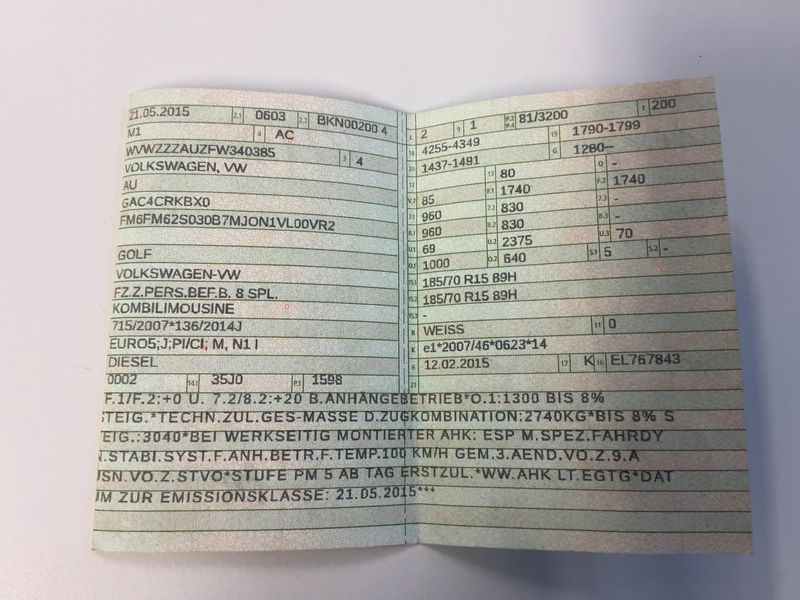 21.05.2015 2.1 0603 2.2 BKN00200 4
M1 4 AC
WVWZZZAUZFW340385 3 4
VOLKSWAGEN, VW
AU
GAC4CRKBX0
FM6FM62S030B7MJON1VL00VR2
GOLF
VOLKSWAGEN-VW
FZ.Z.PERS.BEF.B. 8 SPL.
KOMBILIMOUSINE
715/2007*136/2014J
EURO5;J;PI/CI; M, N1 I
DIESEL
0002 14.1 35J0 P.1 1598
L 2 9 1 P.2 P.4 81/3200 T 200
18 4255-4349 19 1790-1799
20 1437-1491 G 1280--
12 13 80 Q -
V.7 85 F.1 1740 F.2 1740
7.1 960 7.2 830 7.3 -
8.1 960 8.2 830 8.3 -
U.1 69 U.2 2375 U.3 70
O.1 1000 O.2 640 S.1 5 S.2 -
15.1 185/70 R15 89H
15.2 185/70 R15 89H
15.3 -
R WEISS 11 0
K e1*2007/46*0623*14
6 12.02.2015 17 K 16 EL767843
21
F.1/F.2:+0 U. 7.2/8.2:+20 B.ANHÄNGEBETRIEB*O.1:1300 BIS 8%
STEIG.*TECHN.ZUL.GES-MASSE D.ZUGKOMBINATION:2740KG*BIS 8% S
TEIG.:3040*BEI WERKSEITIG MONTIERTER AHK: ESP M.SPEZ.FAHRDY
N.STABI.SYST.F.ANH.BETR.F.TEMP.100 KM/H GEM.3.AEND.VO.Z.9.A
USN.VO.Z.STVO*STUFE PM 5 AB TAG ERSTZUL.*WW.AHK LT.EGTG*DAT
UM ZUR EMISSIONSKLASSE: 21.05.2015***